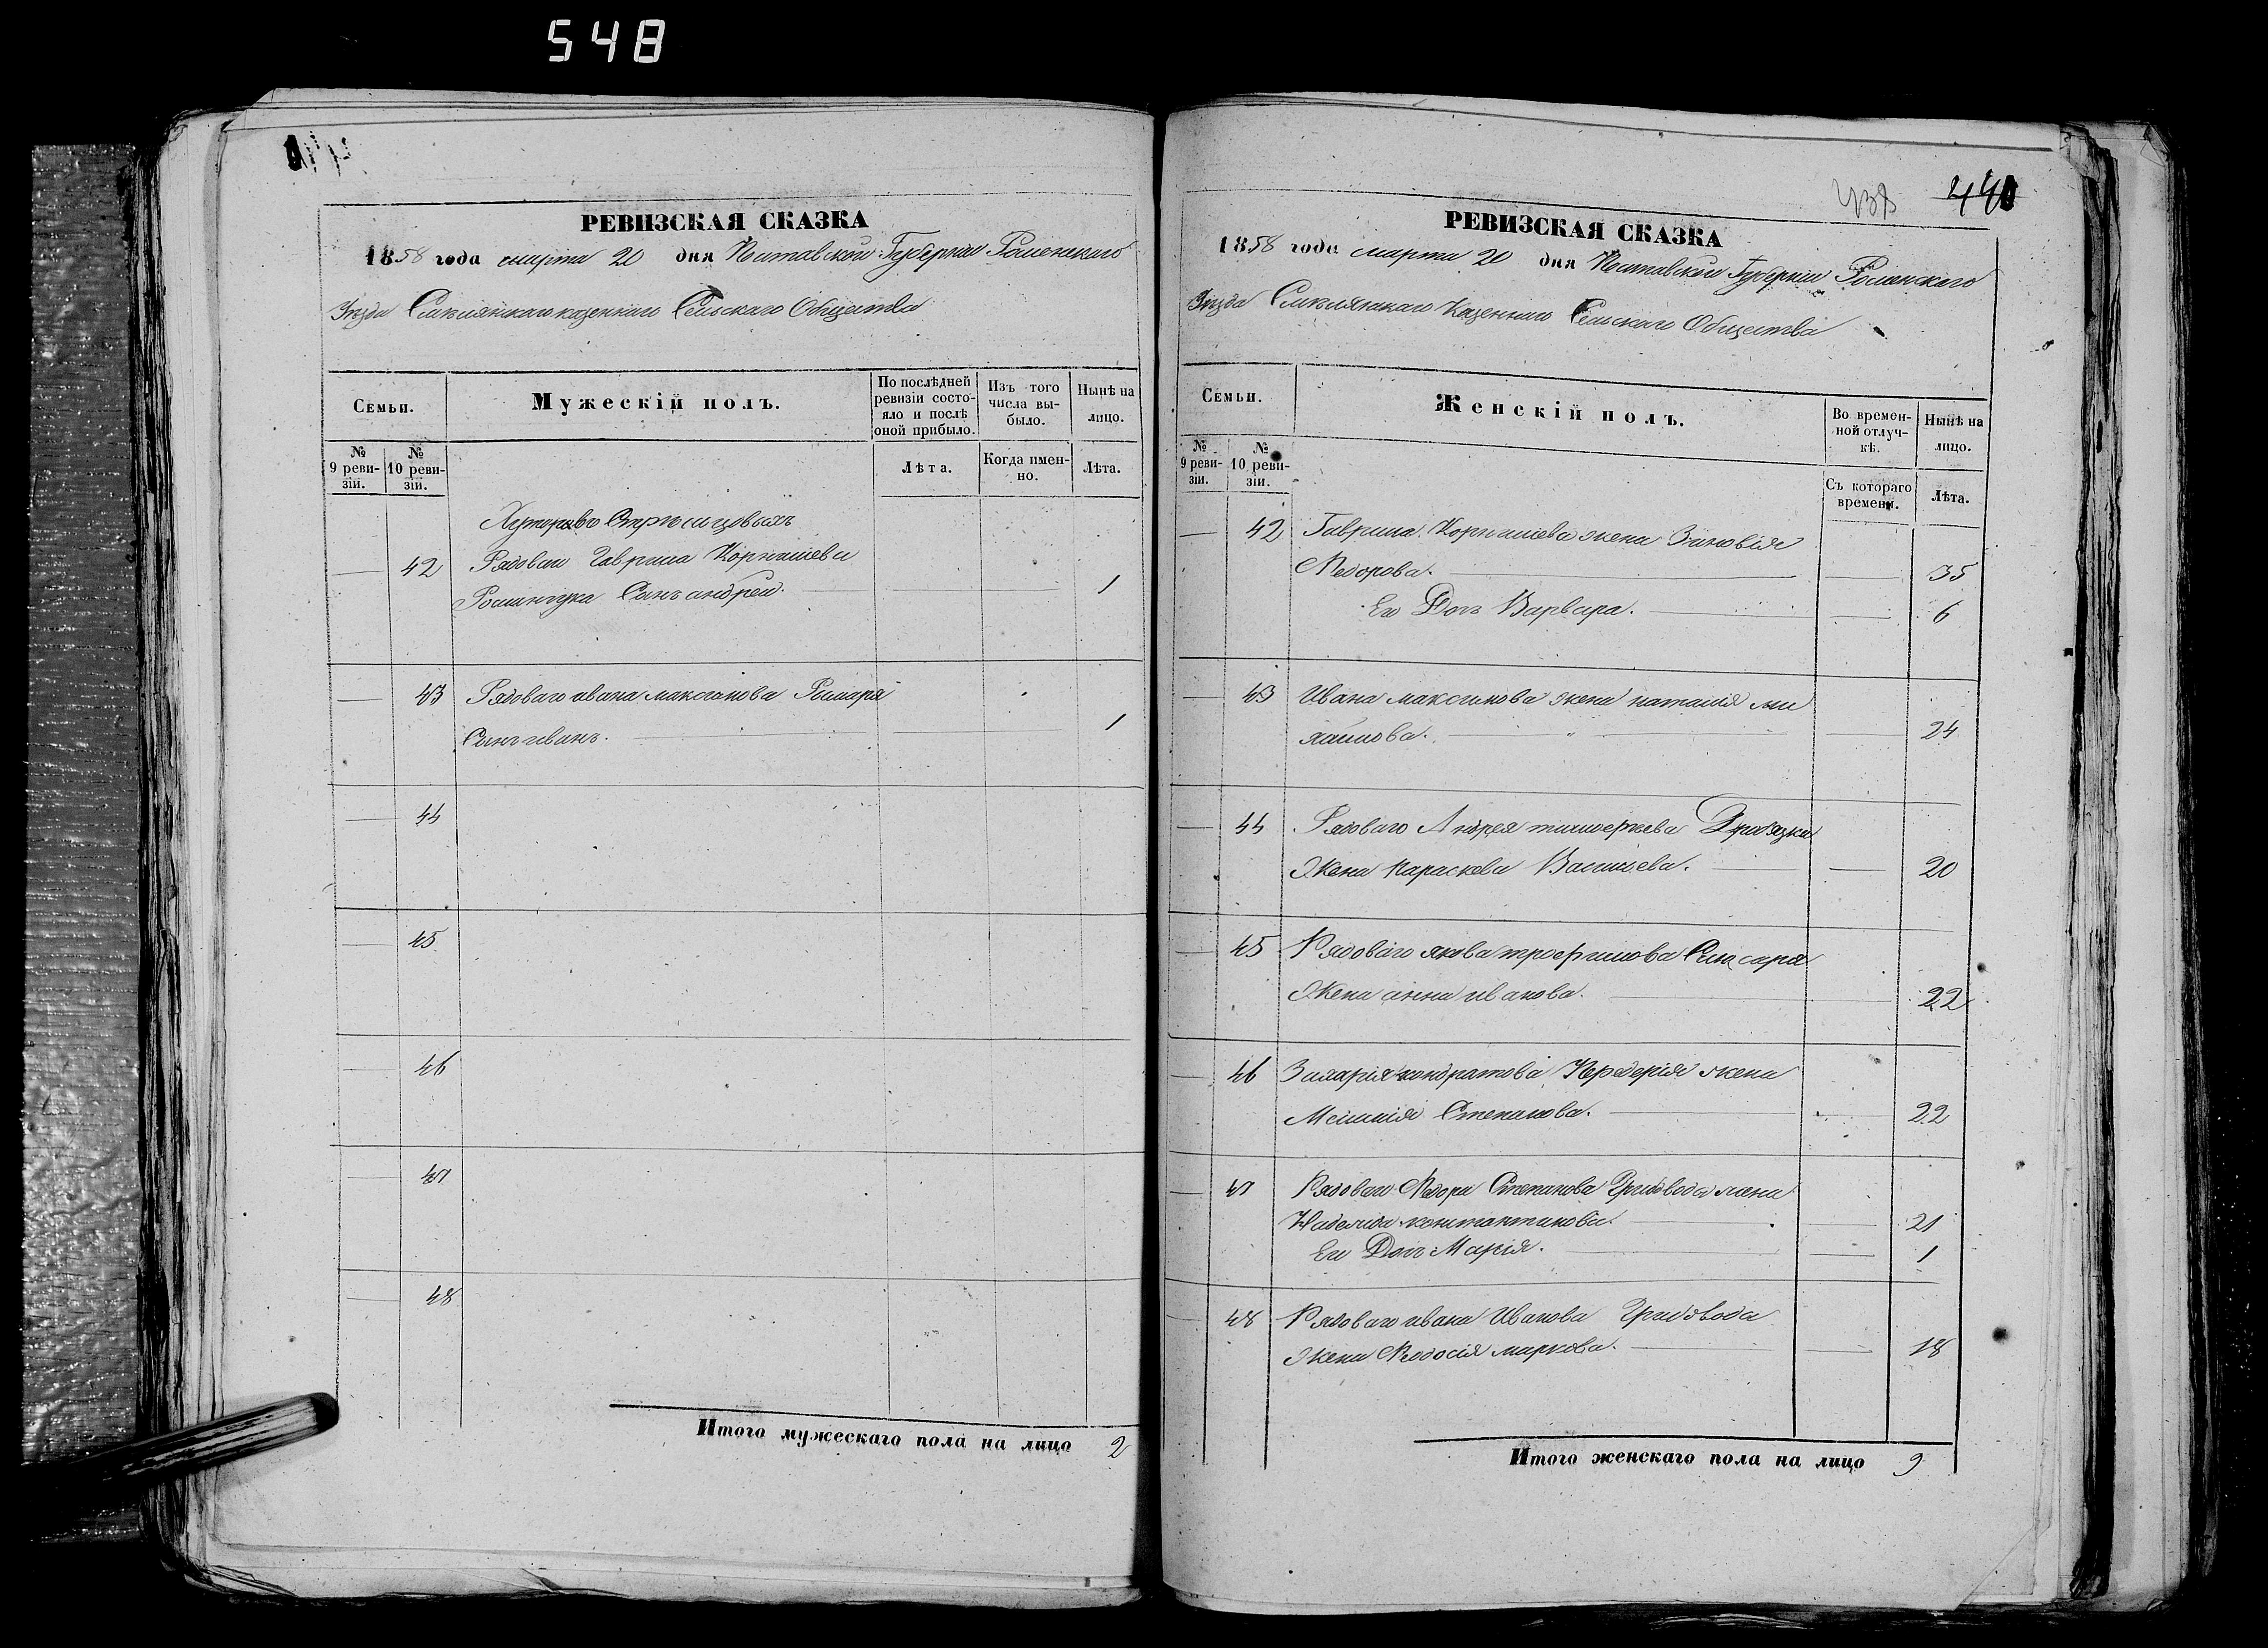 548
440
РЕВИЗСКАЯ СКАЗКА
1858 года марта 20 дня Полтавской Губерніи Роменскаго
Уѣзда Смѣлянскаго казеннаго Сельскаго Общества
Семьи.
Мужескій полъ.
По послѣдней ревизіи состояло и послѣ оной прибыло.
Изъ того числа выбыло.
Нынѣ на лицо.
№ 9 ревизіи.
№ 10 ревизіи.
Лѣта.
Когда именно.
Лѣта.
Хуторовъ
42 Рядоваго Гаврила Корнѣева
Сынъ андрей. 1
43 Рядоваго ивана максимова Римаря
Сынъ иванъ. 1
44
45
46
47
48
Итого мужескаго пола на лицо 2
РЕВИЗСКАЯ СКАЗКА
1858 года марта 20 дня Полтавской Губерніи Роменскаго
Уѣзда Смѣлянскаго Казеннаго Сельскаго Общества
Семьи.
Женскій полъ.
Во временной отлучкѣ.
Нынѣ на лицо.
№ 9 ревизіи.
№ 10 ревизіи.
Съ котораго времени.
Лѣта.
42 Гаврила Корнѣева жена Зиновія
Федорова. 35
Его Дочь Варвара. 6
43 Ивана максимова жена наталія ми
хайлова. 24
44 Рядоваго Андрея тимофеева
Жена Параскева Васильева. 20
45 Рядоваго якова трофимова Слюсаря
Жена анна иванова. 22
46 кондратова жена
Меланія Степанова. 22
47 Рядоваго Федора Степанова жена
константинова. 21
Его Дочь Марія. 1
48 Рядоваго ивана Иванова
Жена Феодосія маркова. 18
Итого женскаго пола на лицо 9